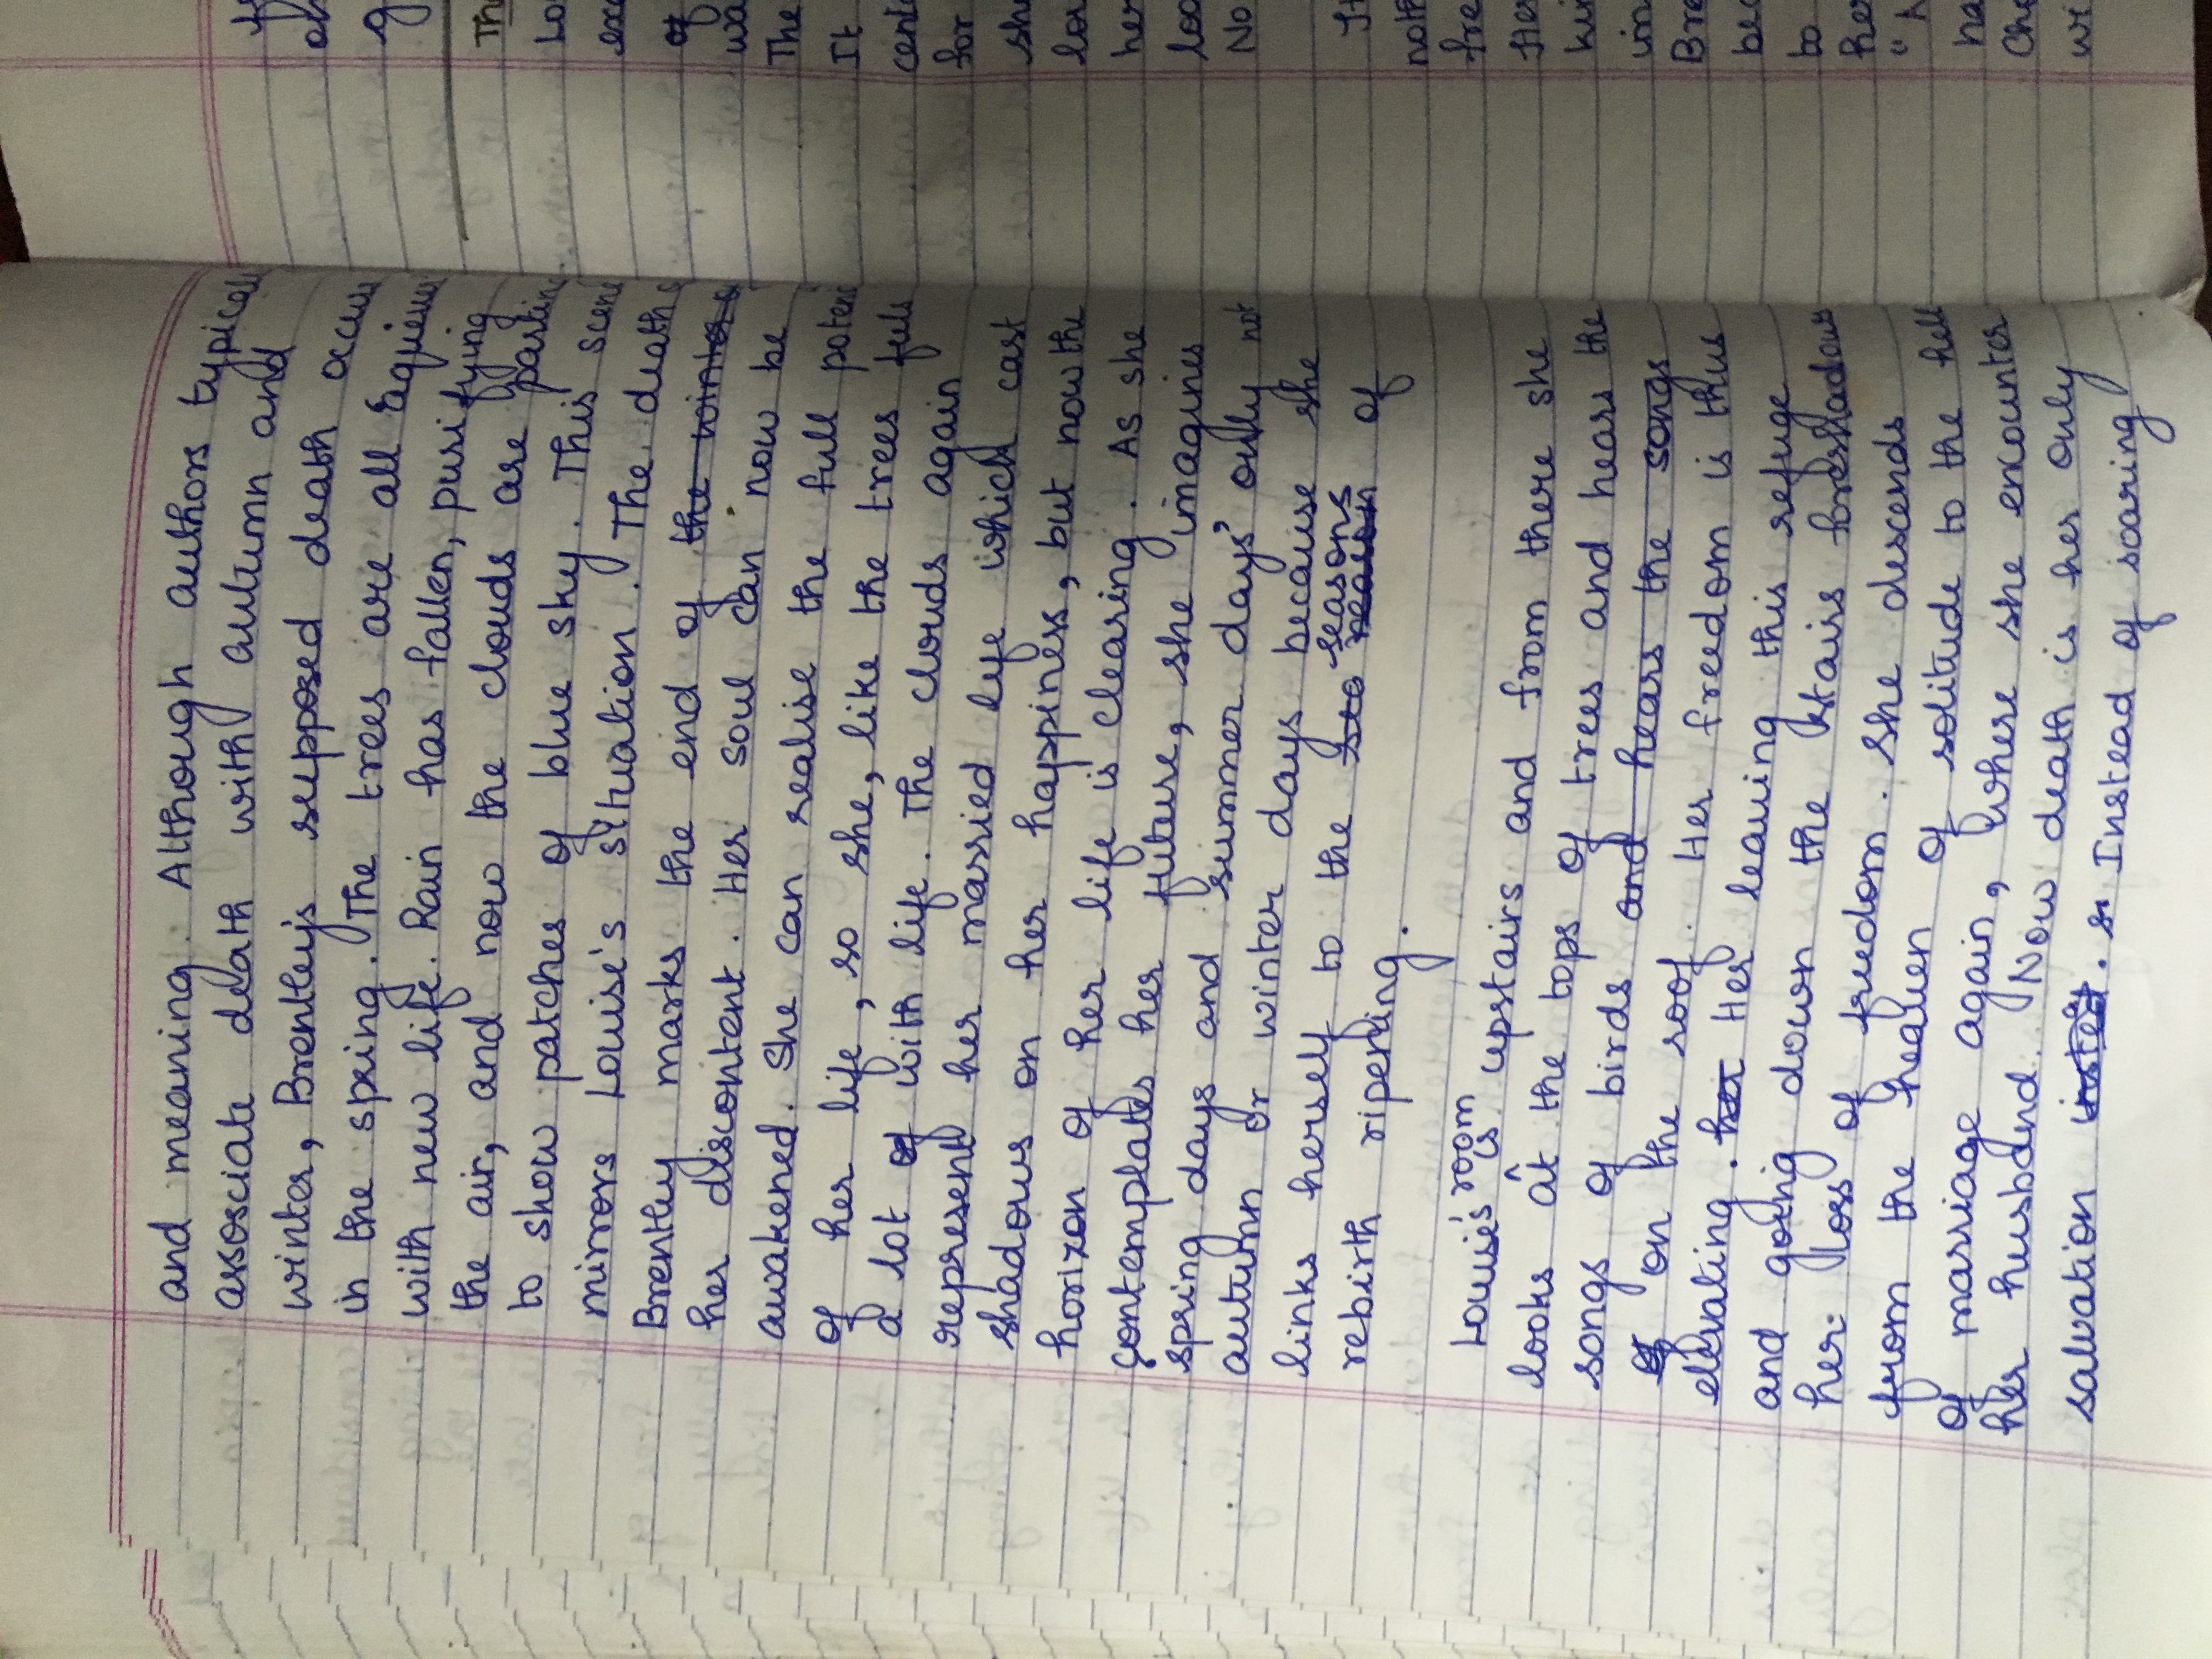 and meaning. Although authors typical
assosciate death with autumn and
winter, Brentley's supposed death occurs
in the spring. The trees are all
with new life. Rain has fallen, purifying
the air, and now the clouds are parting
to show patches of blue sky. This scene
mirrors Louise's situation. The death
Brentley marks the end of the winter
her discontent. Her soul can now be
awakened. She can realise the full poten
of her life, so she, like the trees feels
a lot of with life. The clouds again
represent her married life which cast
shadows on her happiness, but now the
horizon of her life is clearing. As she
contemplates her future, she imagines
spring days and summer days' only not
autumn or winter days because she
links herself to the sea reason seasons of
rebirth ripening.
Louise's room is upstairs and from there she
looks at the tops of trees and hears the
songs of birds and hears the songs
of on the roof. Her freedom is thus
elevating. her Her leaving this refuge
and going down the stairs foreshadows
her loss of freedom. She descends
from the heaven of solitude to the hell
of marriage again, where she encounter
her husband. Now death is her only
salvation instead. s. Instead of soaring
Th
Lo
exc
of
wa
The
It
cent
for
she
lov
her
loo
No
It
noth
fre
Her
kin
im
Bre
bec
to
her
"A
ha
Cho
wi